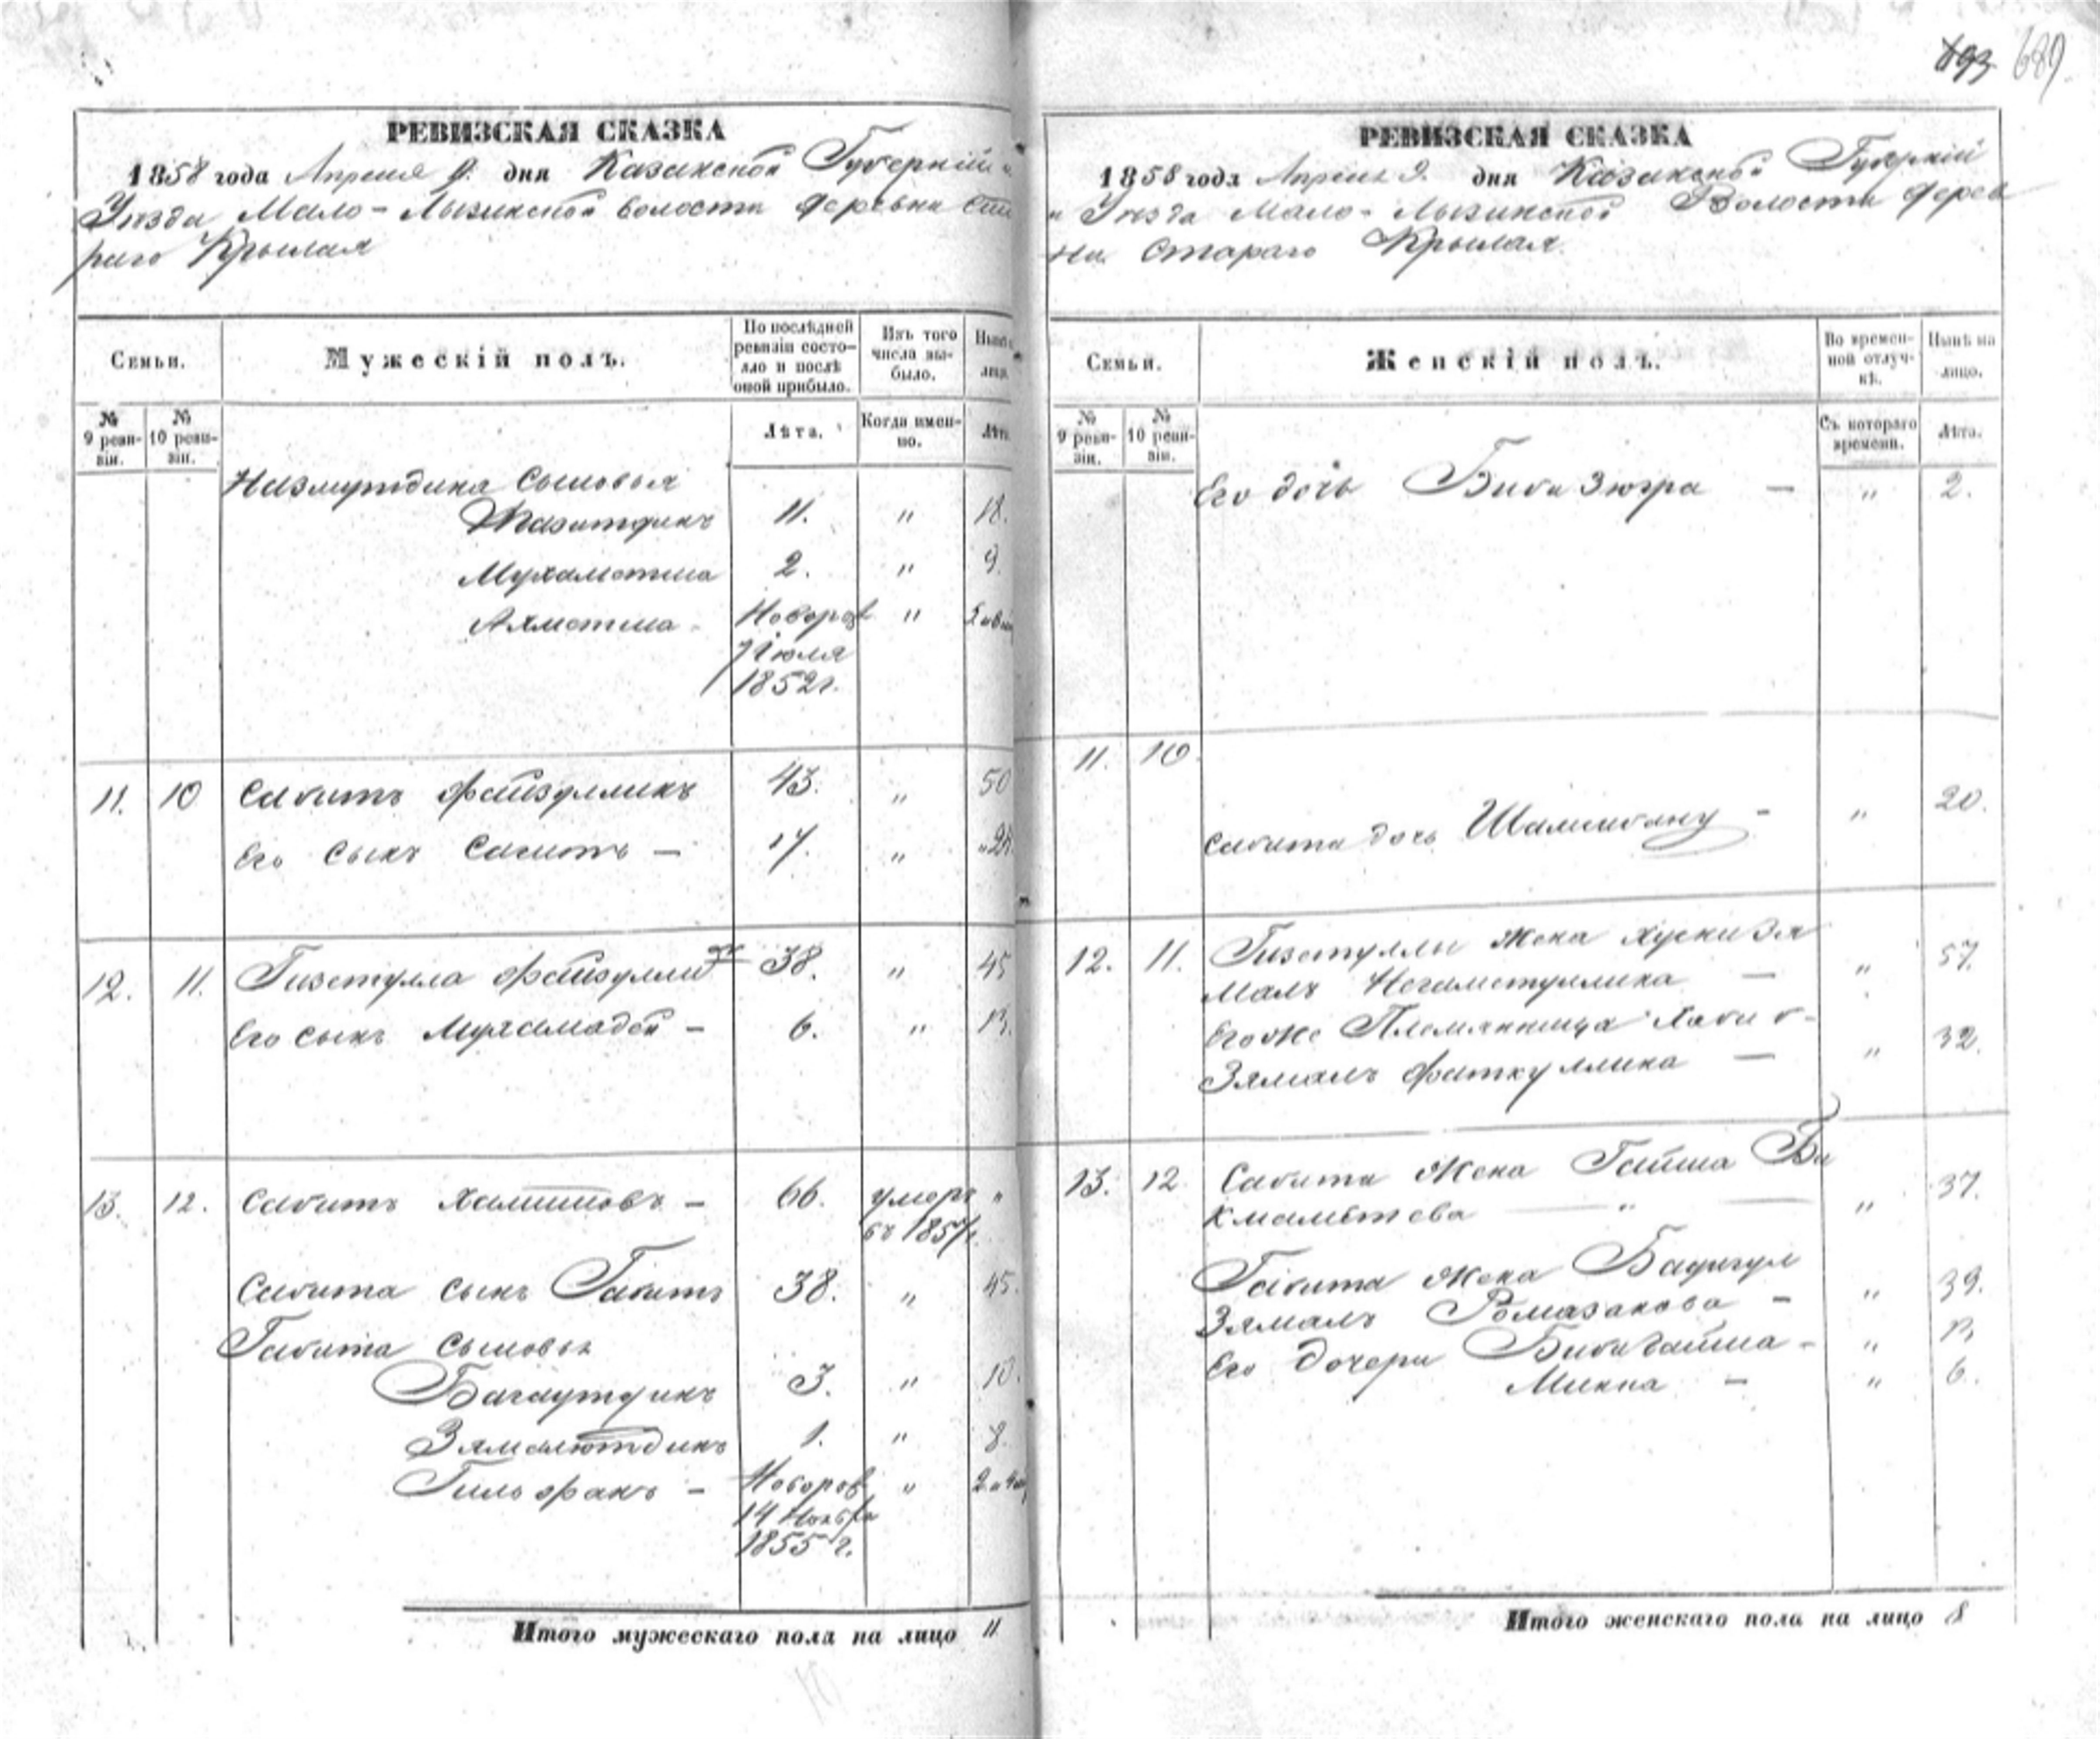 693 689.
РЕВИЗСКАЯ СКАЗКА
1858 года Апреля 9. дня Казанской Губерніи
Уѣзда Мало-Лызинской волости деревни Ста
раго Крылая
Семьи.
Мужескій полъ.
По послѣдней ревизіи состояло и послѣ оной прибыло.
Изъ того числа выбыло.
Нынѣ
лицо.
№ 9 ревизіи.
№ 10 ревизіи.
Лѣта.
Когда именно.
Лѣта
Низмутдина сыновья
11. " 18.
Мухаметша 2. " 9.
Ахметша - Новорож "
Іюля
1852 г.
11. 10 Сабитъ Файзуллинъ 43. " 50
Его сынъ Сагитъ — 17. " 24.
12. 11. Гизетулла Файзуллинъ 38. " 45
Его сынъ Мухамадей - 6. " 13.
13. 12. Сабитъ Халитовъ - 66. умеръ "
въ 1857 г.
Сабита сынъ Габитъ 38. " 45.
Габита сыновья
Багаутдинъ 3. " 10.
Зямалютдинъ 1. " 8.
Гильфанъ - Новорож "
14 Ноября
1855 г.
Итого мужескаго пола на лицо 11
РЕВИЗСКАЯ СКАЗКА
1858 года Апреля 9. дня Казанской Губерніи
Уѣзда Мало-Лызинской Волости дерев
ни Стараго Крылая
Семьи.
Женскій полъ.
Во временной отлучкѣ.
Нынѣ на лицо.
№ 9 ревизіи.
№ 10 ревизіи.
Съ котораго времени.
Лѣта.
Его дочь Биби Зюгра — " 2.
11. 10.
Сабита дочь Шамсибану - " 20.
12. 11. Гизетуллы жена Хусни Зя
малъ Негаметуллина — " 57.
Его же Племянница Хабиб-
Зямалъ Фаткуллина — " 32.
13. 12 Сабита жена Гайша Би
кмаметева — " — " 37.
Габита жена Бадигул
Зямалъ Рамазанова - " 39.
Его дочери Бибигайша - " 13.
Минна — " 6.
Итого женскаго пола на лицо 8